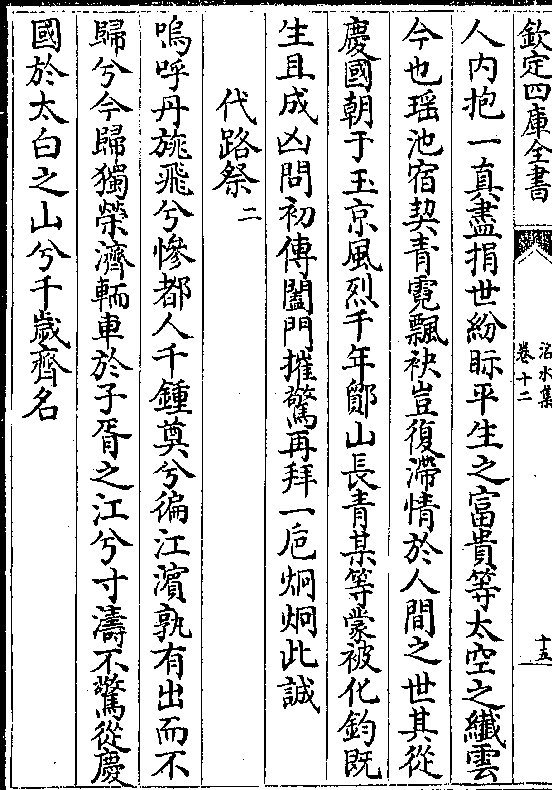 欽定四庫全書
洺水集
卷十二
十五
人内抱一真盡捐世紛眎平生之富貴等太空之纎雲
今也瑶池宿契青霓飄袂豈復滯情於人間之世其從
慶國朝于玉京風烈千年鄮山長青某等蒙被化鈞既
生且成凶問初傳闔門摧驚再拜一巵炯炯此誠
代路祭二
嗚呼丹旐飛兮慘都人千鍾奠兮徧江濱孰有出而不
歸兮今歸獨榮濟輀車於子胥之江兮寸濤不驚從慶
國於太白之山兮千歲齊名